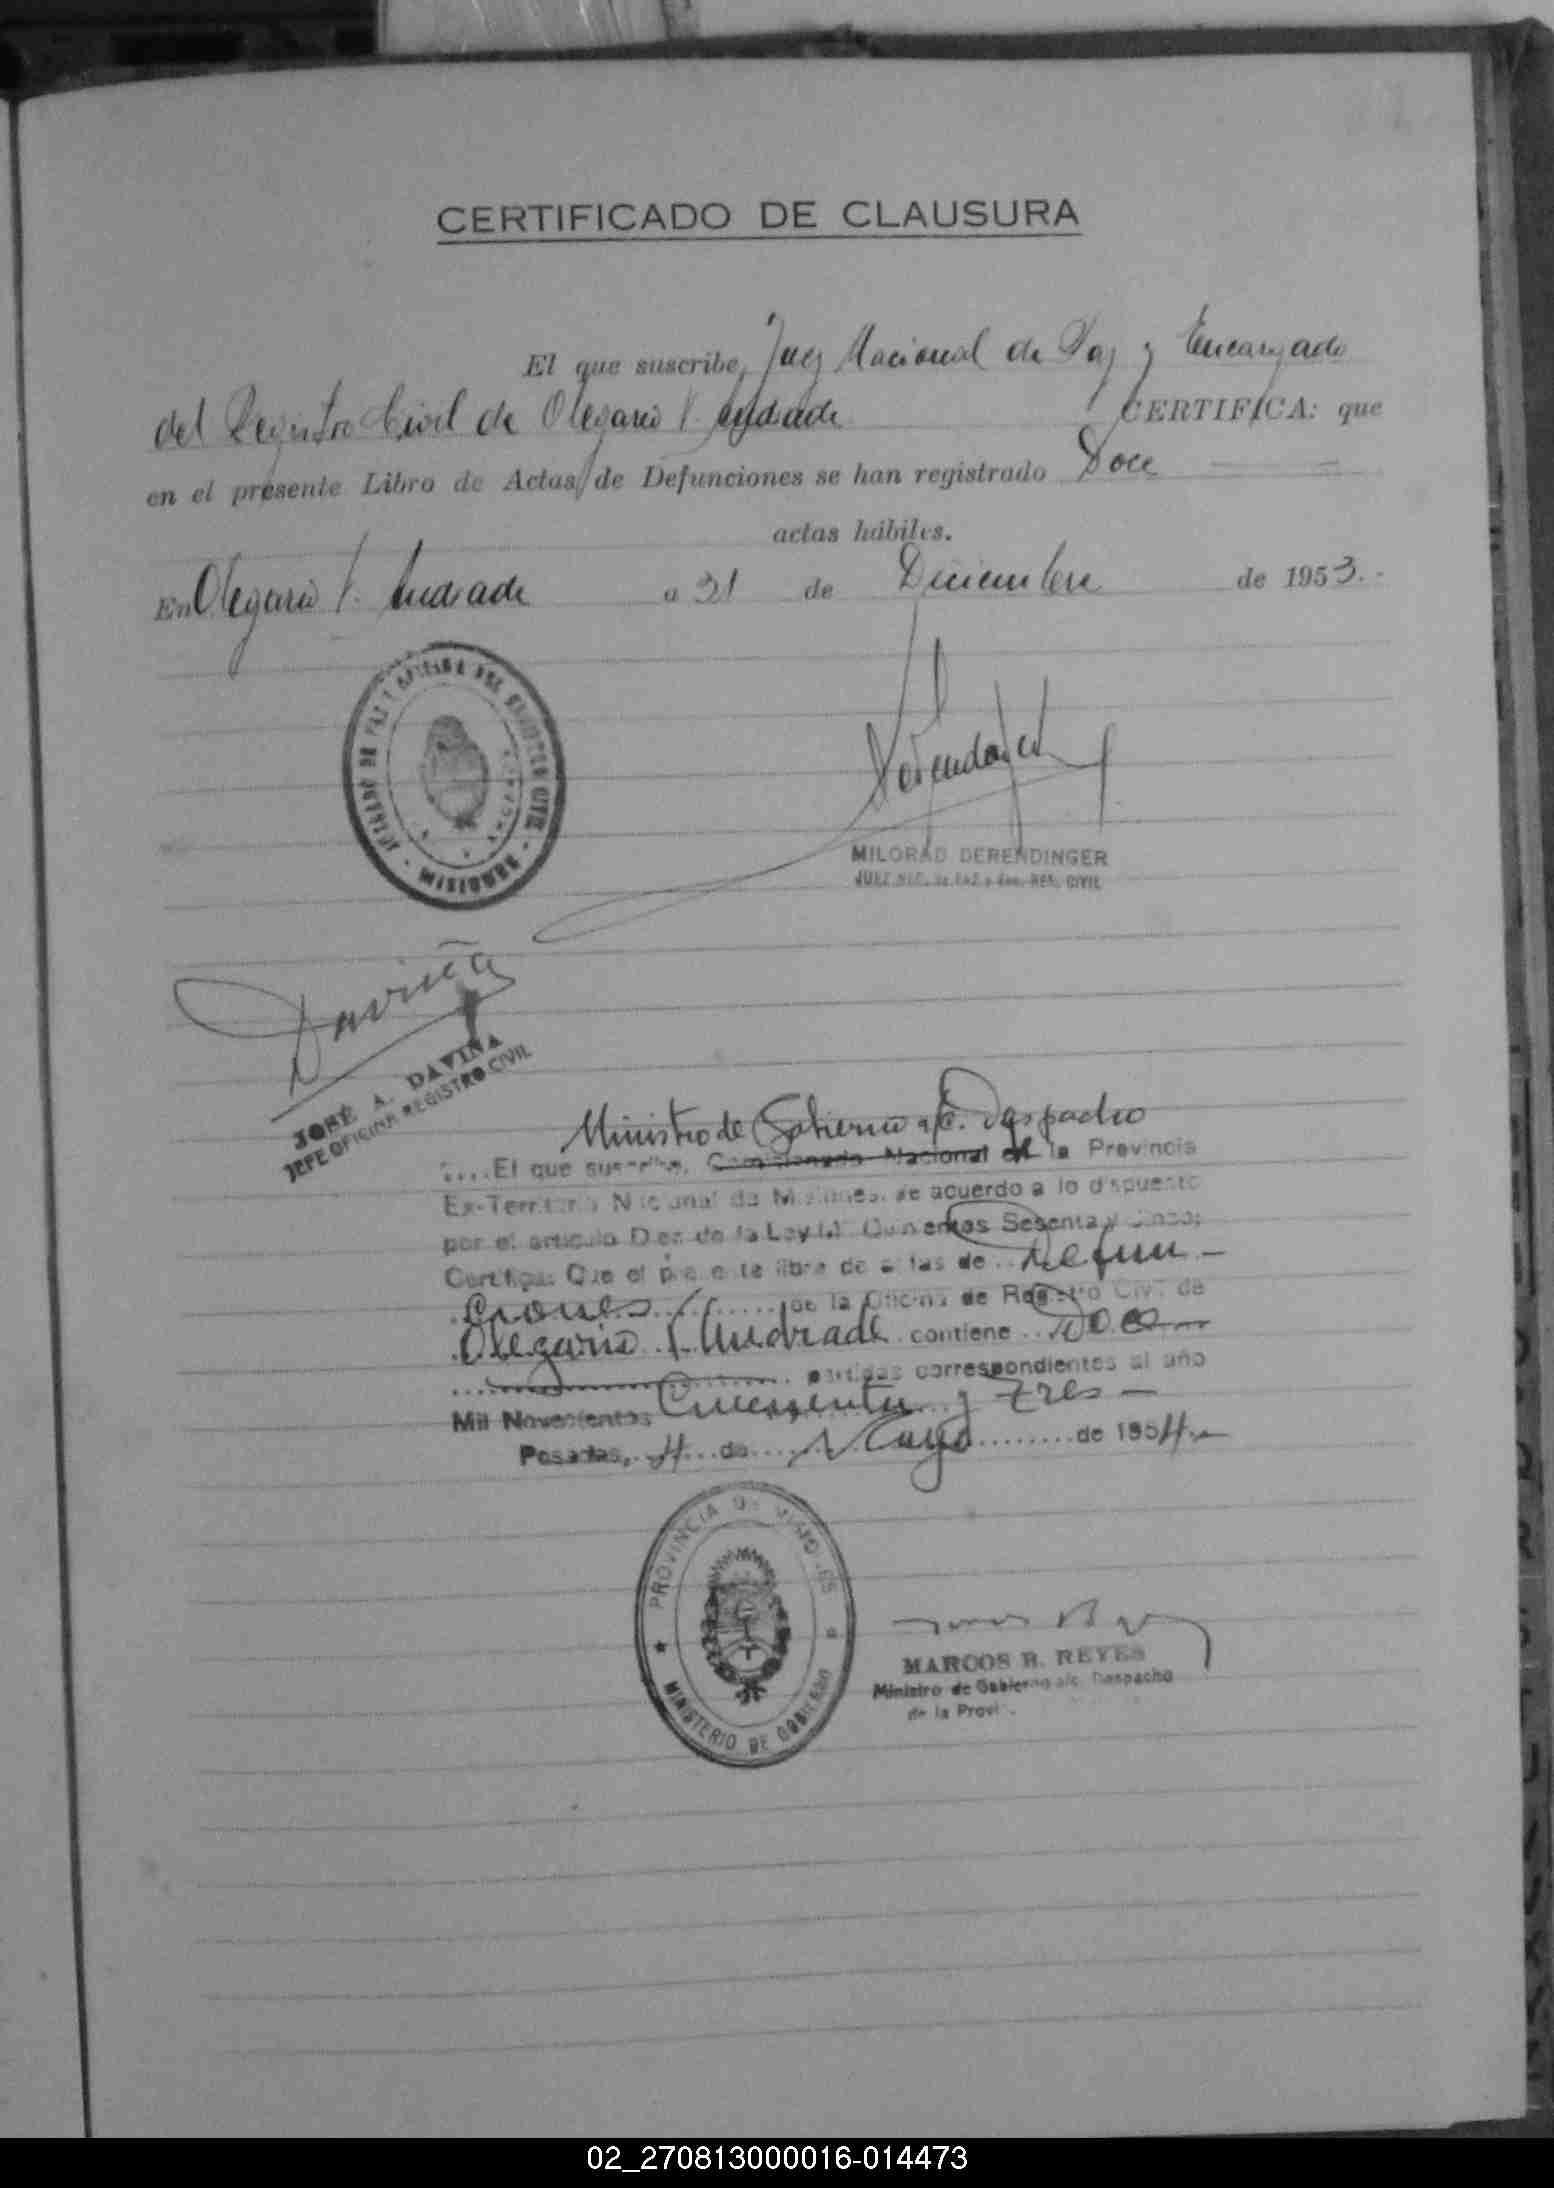 CERTIFICADO DE CLAUSURA
El que suscribe, Juez Nacional de Paz y Encargado
del Registro Civil de Olegario V. Andrade CERTIFICA: que
en el presente Libro de Actas de Defunciones se han registrado Doce
actas hábiles.
En Olegario V. Andrade a 31 de Diciembre de 1953.-
JUZGADO DE PAZ Y OFICINA DEL REGISTRO CIVIL - MISIONES
Derendinger
MILORAD DERENDINGER
JUEZ NAC. de PAZ y Enc. REG. CIVIL
Daviña
JOSÉ A. DAVIÑA
JEFE OFICINA REGISTRO CIVIL
Ministro de Gobierno a/c. Despacho
....El que suscribe, Comisionado Nacional en la Provincia
Ex-Territorio Nacional de Misiones, de acuerdo a lo dispuesto
por el artículo Diez de la Ley N° Quinientos Sesenta y Cinco;
Certifica: Que el presente libro de actas de ..Defun-
ciones de la Oficina de Registro Civil de
Olegario V. Andrade contiene ..Doce
partidas correspondientes al año
Mil Novecientos Cincuenta y tres-
Posadas, 4 de Mayo de 1954.-
PROVINCIA DE MISIONES
MINISTERIO DE GOBIERNO
MARCOS R. REYES
Ministro de Gobierno a/c. Despacho
de la Provi
02_270813000016-014473